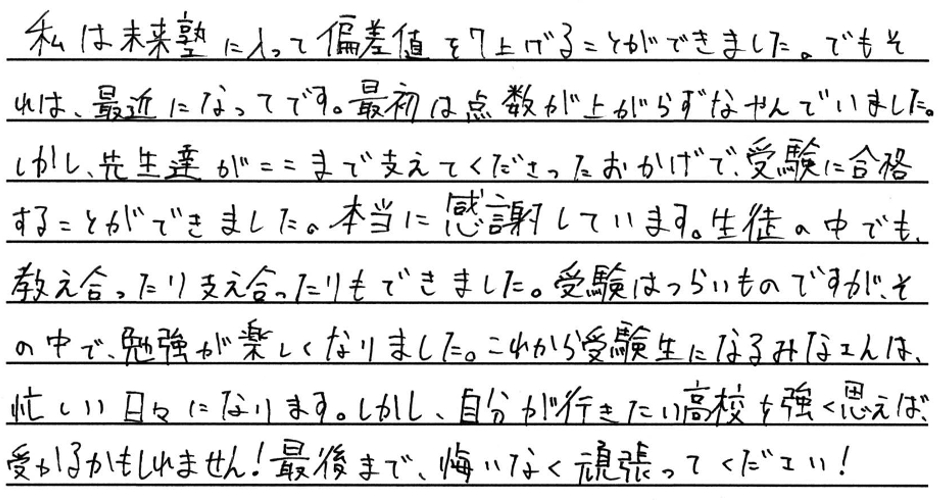 私は未来塾に入って偏差値を7上げることができました。でもそ
れは、最近になってです。最初は点数が上がらずなやんでいました。
しかし、先生達がここまで支えてくださったおかげで、受験に合格
することができました。本当に感謝しています。生徒の中でも、
教え合ったり支え合ったりもできました。受験はつらいものですが、そ
の中で、勉強が楽しくなりました。これから受験生になるみなさんは、
忙しい日々になります。しかし、自分が行きたい高校を強く思えば、
受かるかもしれません!最後まで、悔いなく頑張ってください!